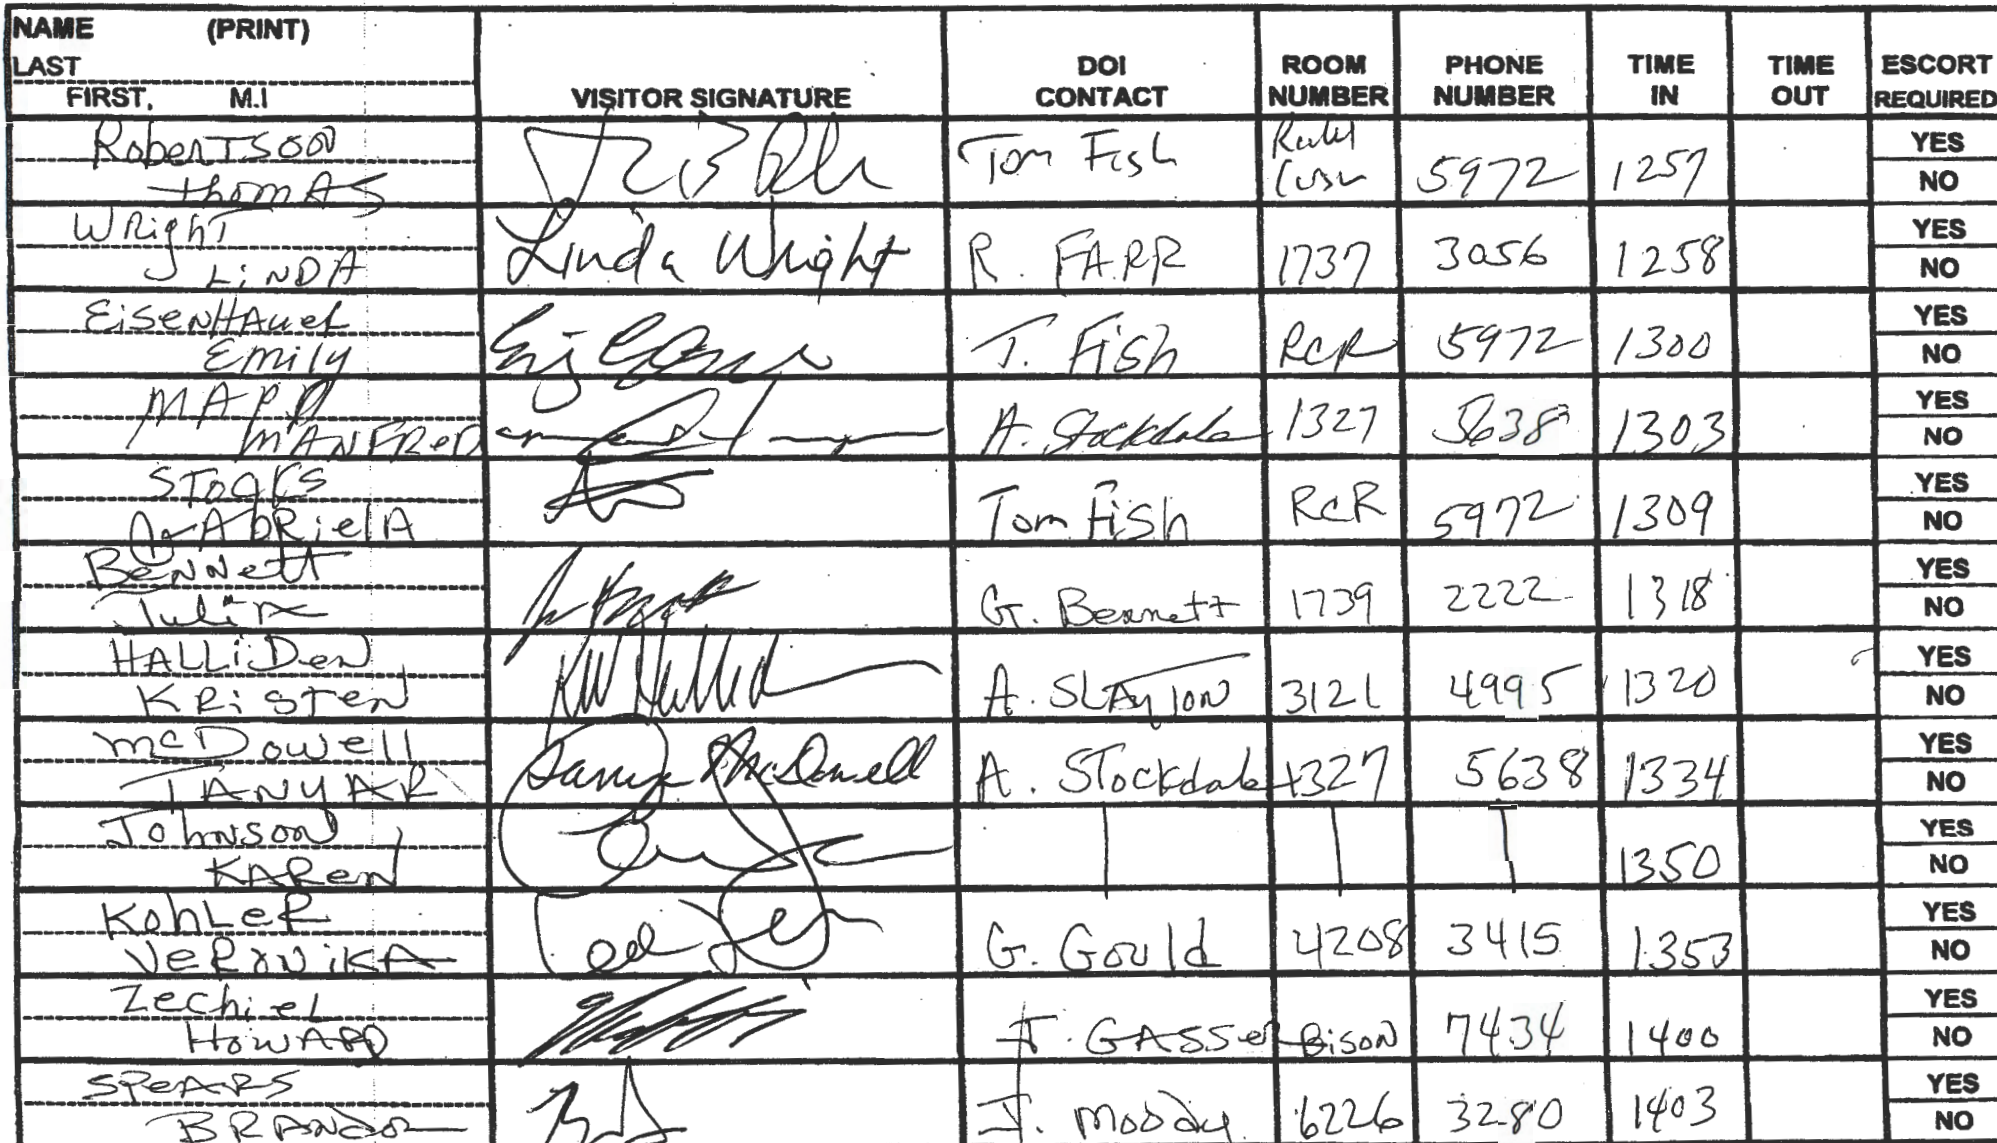 NAME (PRINT)
LAST
FIRST, M.I
VISITOR SIGNATURE
DOI CONTACT
ROOM NUMBER
PHONE NUMBER
TIME IN
TIME OUT
ESCORT REQUIRED
Robertson
Thomas
Tom Fish 5972 1257
YES
NO
Wright
LiNDA
Linda Wright R. FARR 1737 3056 1258
YES
NO
EisenHAuer
Emily
J. Fish RCR 5972 1300
YES
NO
MAPP
MANFReD
A. Stockdale 1327 5638 1303
YES
NO
STocks
GAbRielA
Tom Fish RCR 5972 1309
YES
NO
BeNNett
Julia
G. Bennett 1739 2222 1318
YES
NO
HALLiDeN
KRiSTeN
A. SLAYTON 3121 4995 1320
YES
NO
McDowell
TANYAR
Tanya McDowell A. STockdale 1327 5638 1334
YES
NO
JohNSoN
KAReN
1350
YES
NO
KohLeR
VeRoNiKA
G. Gould 4208 3415 1353
YES
NO
ZechieL
HowARD
GASSeR BiSoN 7434 1400
YES
NO
SPeARS
BRANDoN
J. Moody 6226 3280 1403
YES
NO